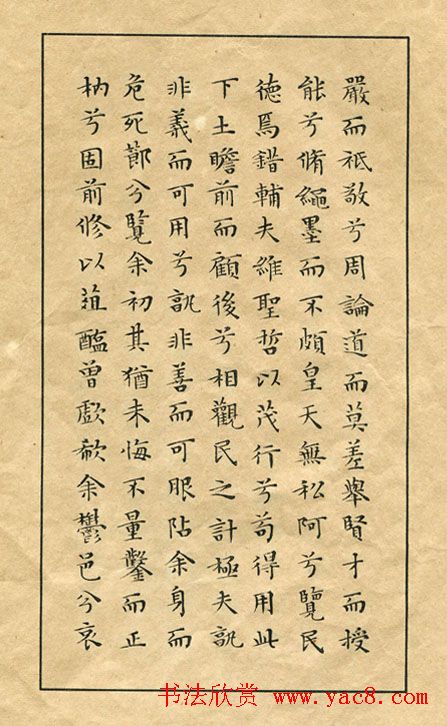 嚴而祗敬兮周論道而莫差舉賢才而授
能兮脩繩墨而不頗皇天無私阿兮覽民
德焉錯輔夫維聖哲以茂行兮苟得用此
下土瞻前而顧後兮相觀民之計極夫孰
非義而可用兮孰非善而可服阽余身而
危死莭兮覽余初其猶未悔不量鑿而正
枘兮固前修以菹醢曾歔欷余鬱邑兮哀
书法欣赏 www.yac8.com